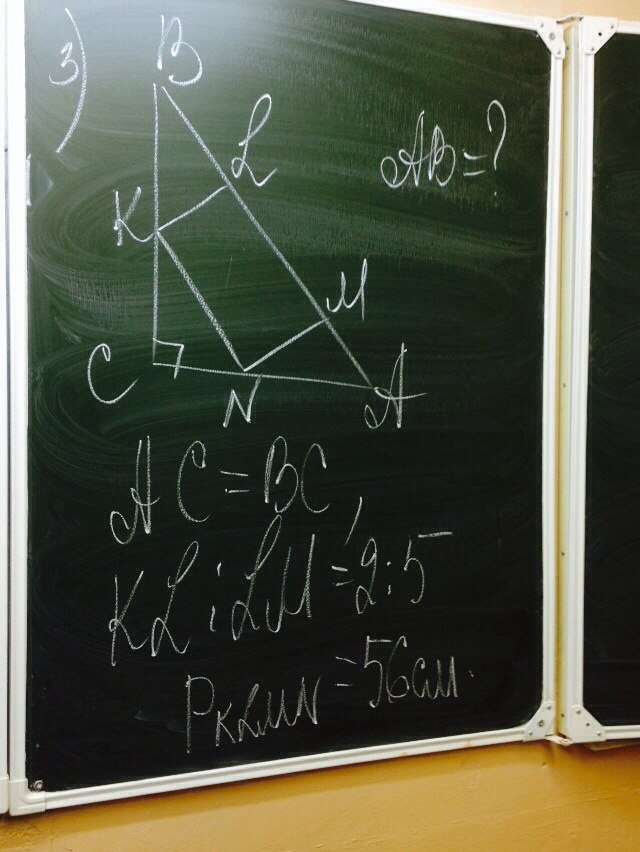 3)
B
L
AB = ?
K
M
C
N
A
AC = BC,
KL : LM = 2:5
PKLMN = 56 см.